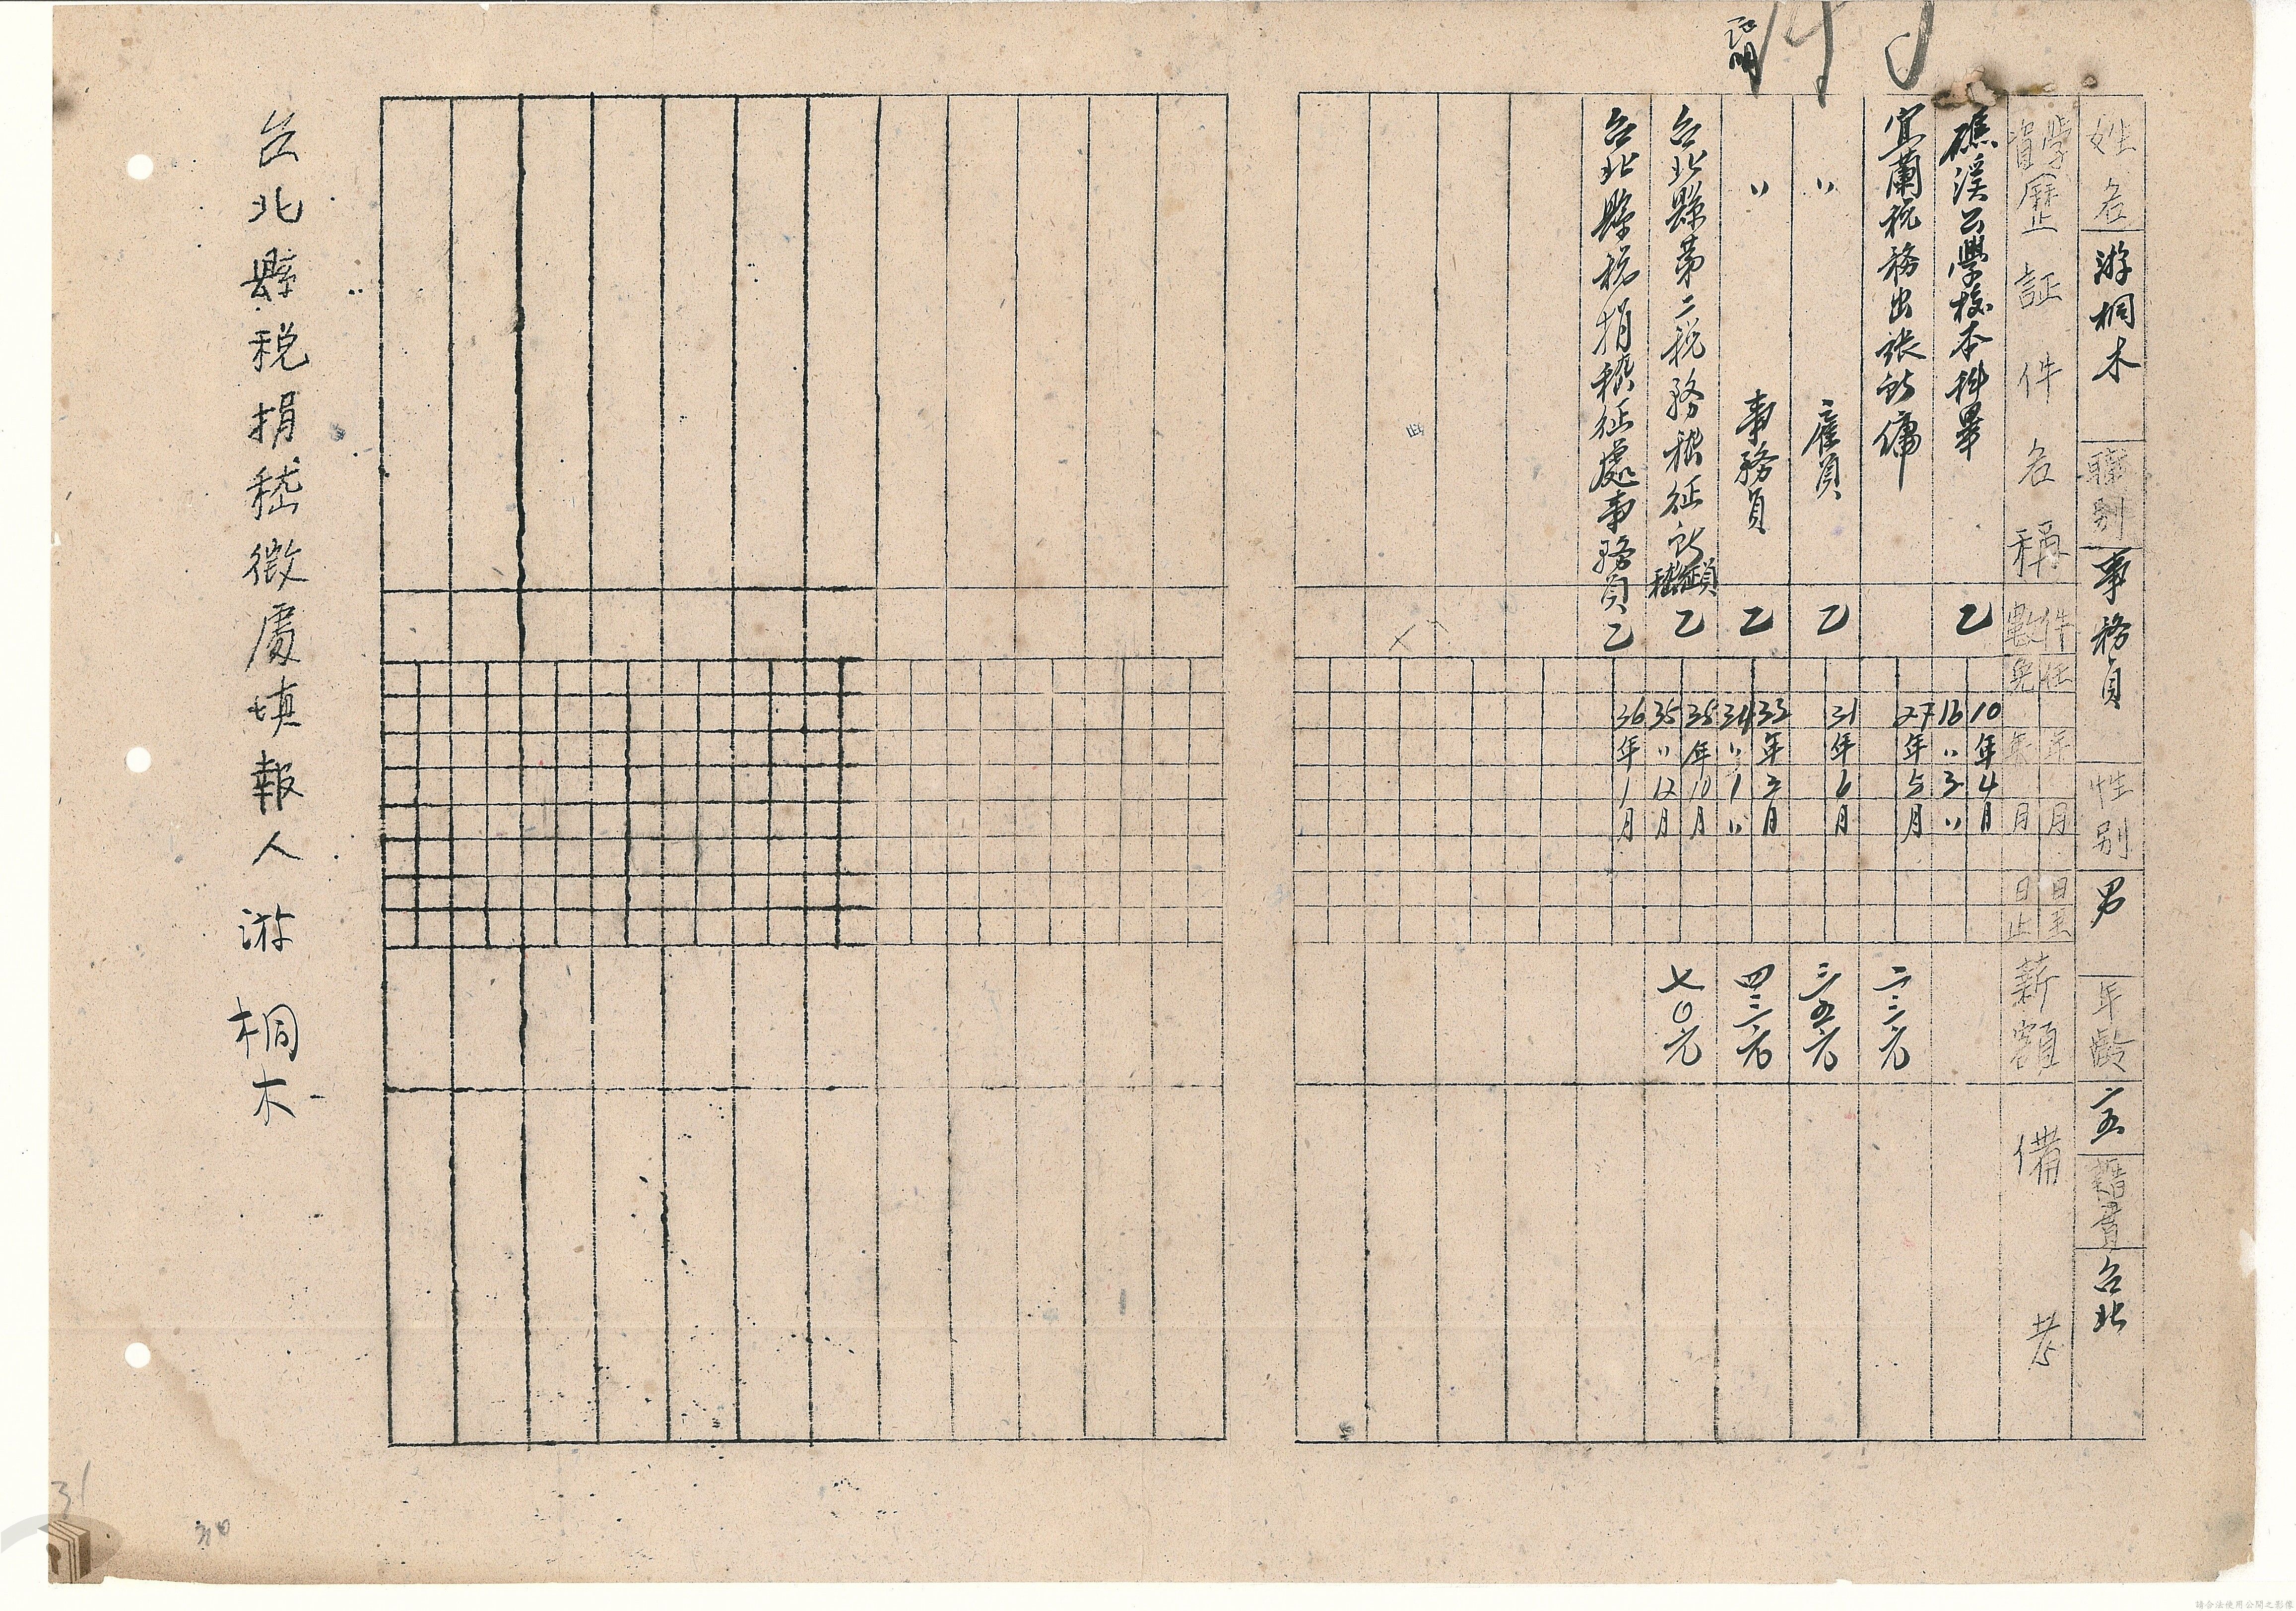 姓名 游桐木 職別 事務員 性別 男 年齡 二五 籍貫 台北
學資歷証件名稱 件數 任免 年年 月月 日日 至止 薪額 備考
礁溪公學校本科畢 乙 10年4月 16〃3〃
宜蘭稅務出張所傭 27年5月 二三元
〃 雇員 乙 31年6月 三五元
〃 事務員 乙 33年3月 34〃1〃 四三元
台北縣第二稅務稽征所稽征員 乙 35年10月 35〃12月 七〇元
台北縣稅捐稽征處事務員 乙 36年1月
台北縣税捐嵇徵處填報人 游桐木
31
請合法使用公開之影像